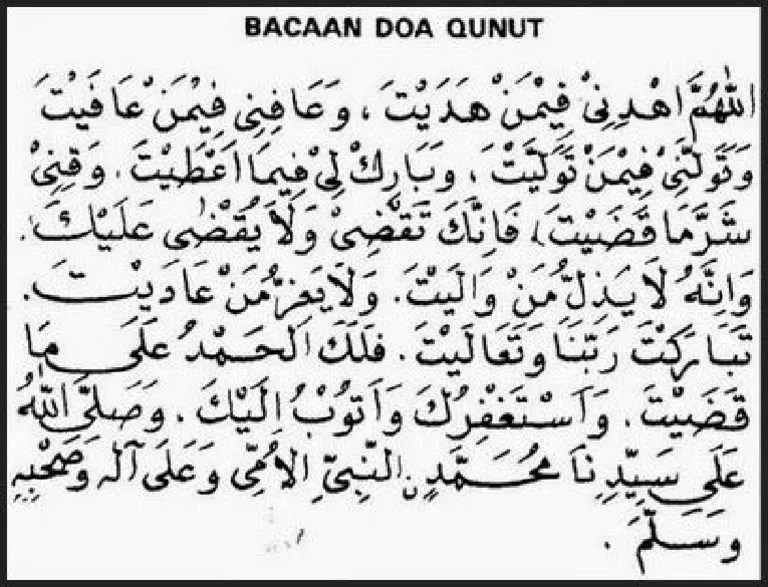 BACAAN DOA QUNUT
اَللّٰهُمَّ اهْدِنِيْ فِيْمَنْ هَدَيْتَ ، وَعَافِنِي فِيْمَنْ عَافَيْتَ
وَتَوَلَّنِيْ فِيْمَنْ تَوَلَّيْتَ ، وَبَارِكْ لِيْ فِيمَا اَعْطَيْتَ . وَقِنِيْ
شَرَّ مَا قَضَيْتَ ، فَاِنَّكَ تَقْضِيْ وَلَا يُقْضٰى عَلَيْكَ .
وَاِنَّهُ لَا يَذِلُّ مَنْ وَالَيْتَ . وَلَا يَعِزُّ مَنْ عَادَيْتَ .
تَبَارَكْتَ رَبَّنَا وَتَعَالَيْتَ . فَلَكَ الْحَمْدُ عَلَى مَا
قَضَيْتَ . وَاَسْتَغْفِرُكَ وَاَتُوْبُ اِلَيْكَ . وَصَلَّى اللّٰهُ
عَلَى سَيِّدِنَا مُحَمَّدٍ نِ النَّبِيِّ الْاُمِّيِّ وَعَلَى آلِهِ وَصَحْبِهِ
وَسَلَّمَ .